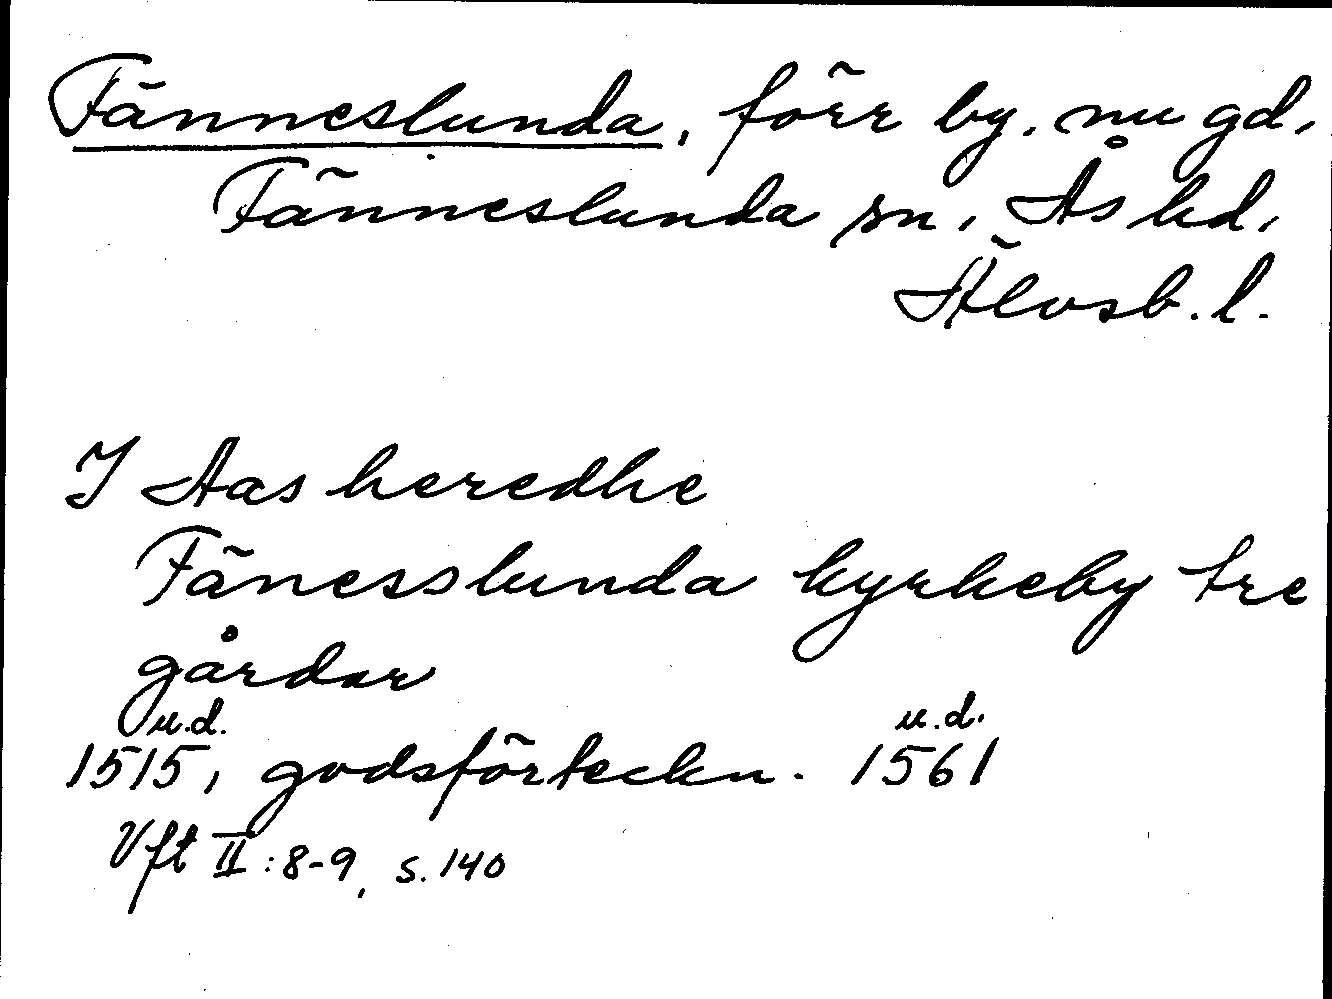 Fänneslunda, förr by. nu gd,
Fänneslunda sn, Ås hd,
Älvsb. l.
I Aas heredhe
Fänesslunda kyrkeby tre
gårdar
u.d. u.d.
1515, godsförteckn. 1561
Vft II:8-9, s. 140